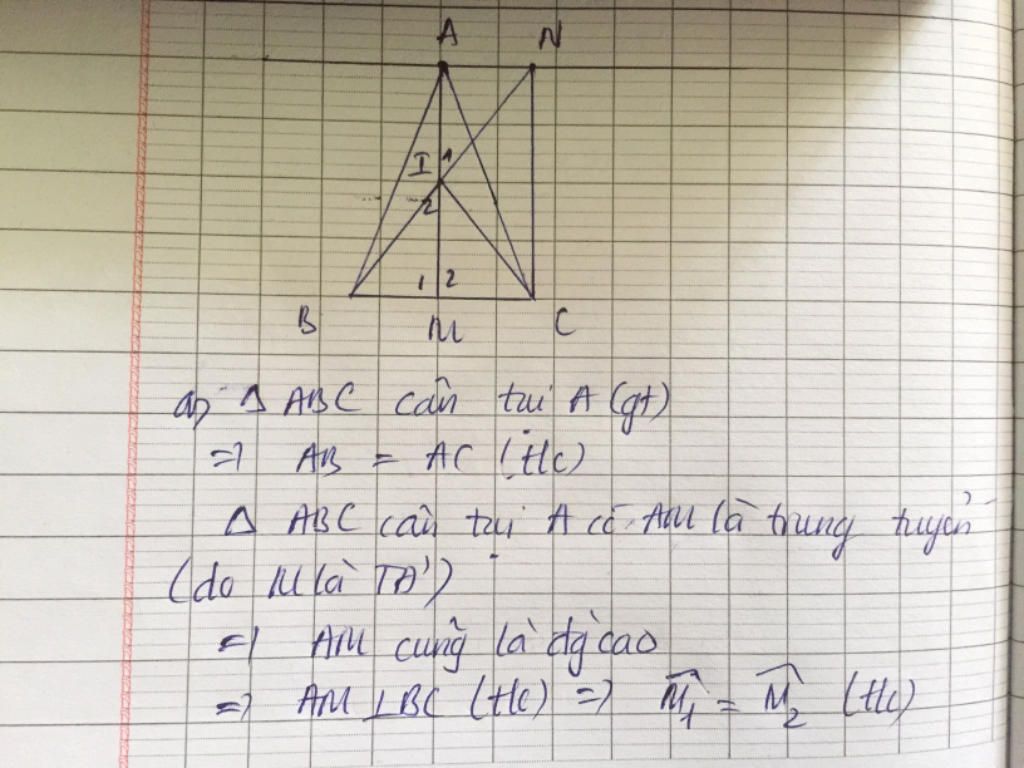 A N
I 1
2
1 2
B M C
a, Δ ABC cân tại A (gt)
=> AB = AC (t/c)
Δ ABC cân tại A có AM là trung tuyến
(do M là TĐ)
=> AM cũng là đg cao
=> AM ⊥ BC (t/c) => M̂₁ = M̂₂ (t/c)